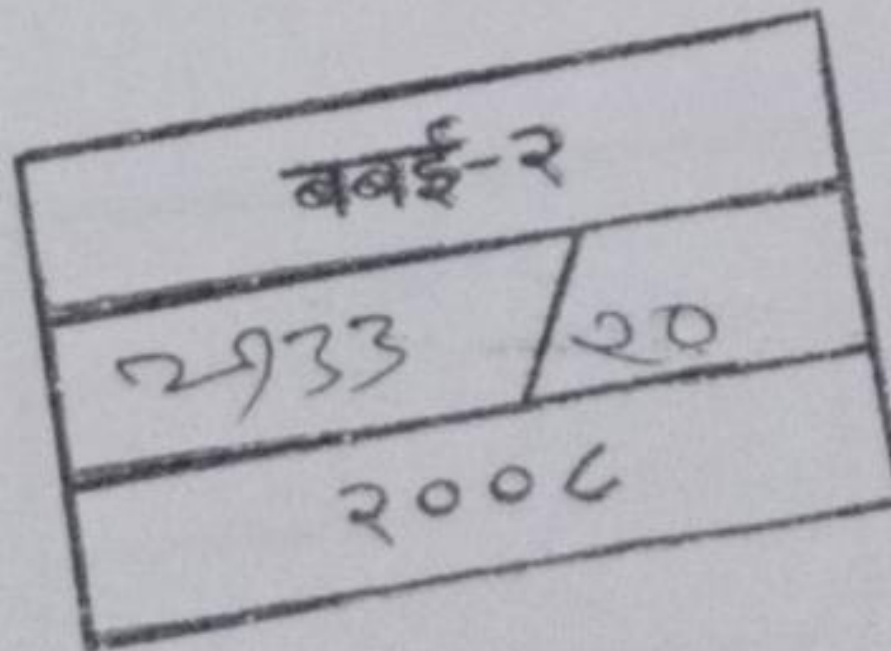 बबई-२
२१३३ / २०
२००८